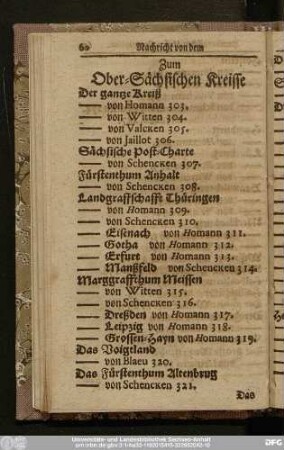 60 Nachricht von dem
Zum
Ober-Sächsischen Kreisse
Der gantze Kreiß
von Homann 303.
von Witten 304.
von Valcken 305.
von Jaillot 306.
Sächsische Post-Charte
von Schencken 307.
Fürstenthum Anhalt
von Schencken 308.
Landgraffschafft Thüringen
von Homann 309.
von Schencken 310.
Eisenach von Homann 311.
Gotha von Homann 312.
Erfurt von Homann 313.
Manßfeld von Schencken 314.
Marggraffthum Meissen
von Witten 315.
von Schencken 316.
Dreßden von Homann 317.
Leipzig von Homann 318.
Grossen-Hayn von Homann 319.
Das Voigtland
von Blaeu 320.
Das Fürstenthum Altenbrug
von Schencken 321.
Das
Universitäts- und Landesbibliothek Sachsen-Anhalt
DFG